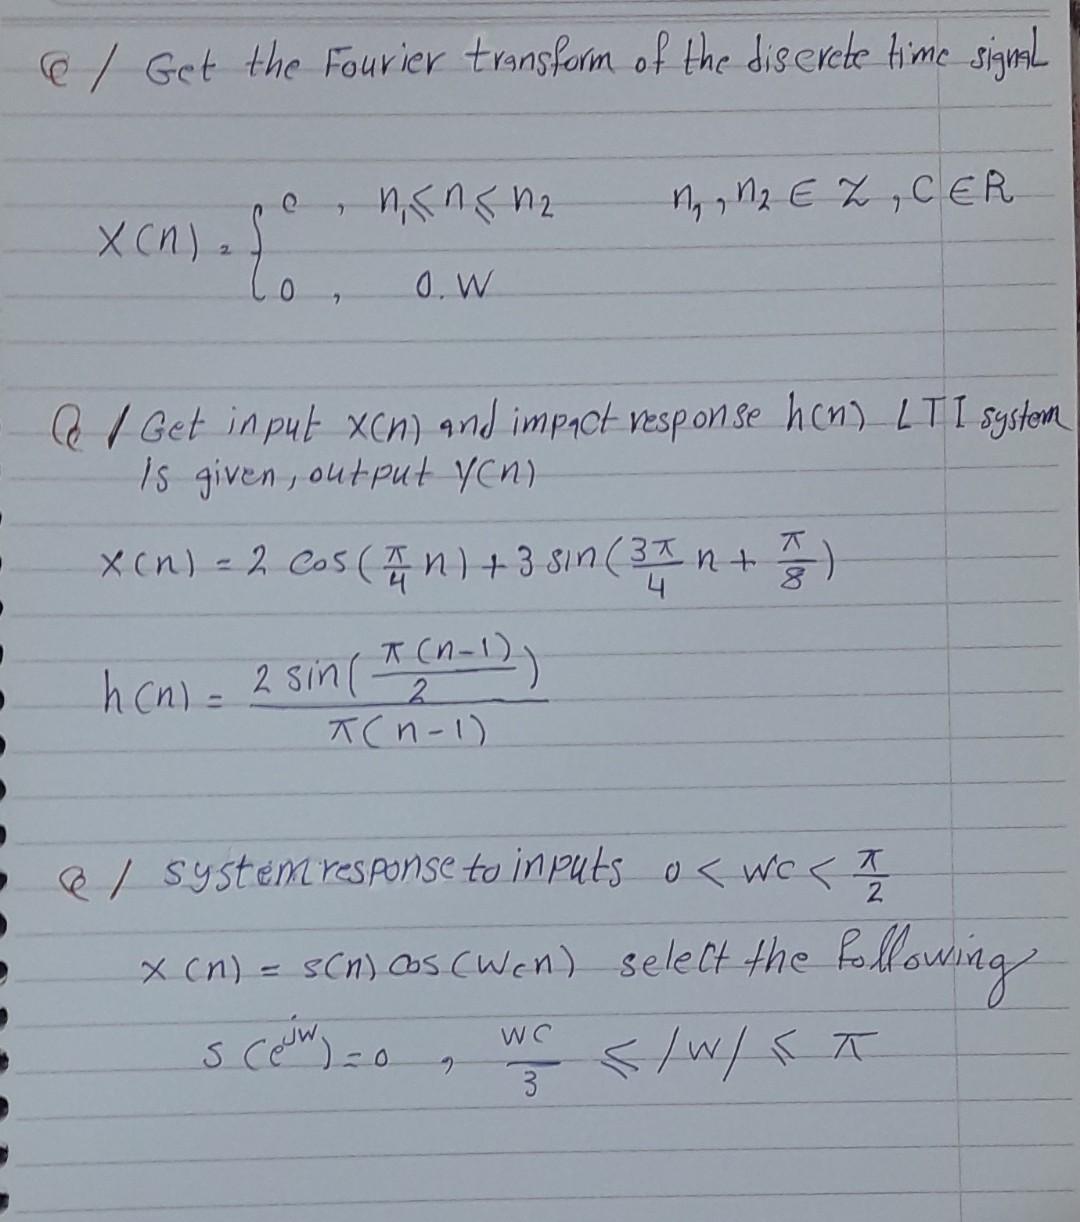 Q / Get the Fourier transform of the discrete time signal
x(n) = { c , n₁ ≤ n ≤ n₂ n₁, n₂ ∈ Z, C ∈ R
0 , 0.W
Q / Get input x(n) and impact response h(n) LTI system
is given, output y(n)
x(n) = 2 cos(π/4 n) + 3 sin(3π/4 n + π/8)
h(n) = 2 sin(π(n-1)/2) / π(n-1)
Q / system response to inputs 0 < wc < π/2
x(n) = s(n) cos(wcn) select the following
s(e^jw) = 0 , wc/3 ≤ /w/ ≤ π